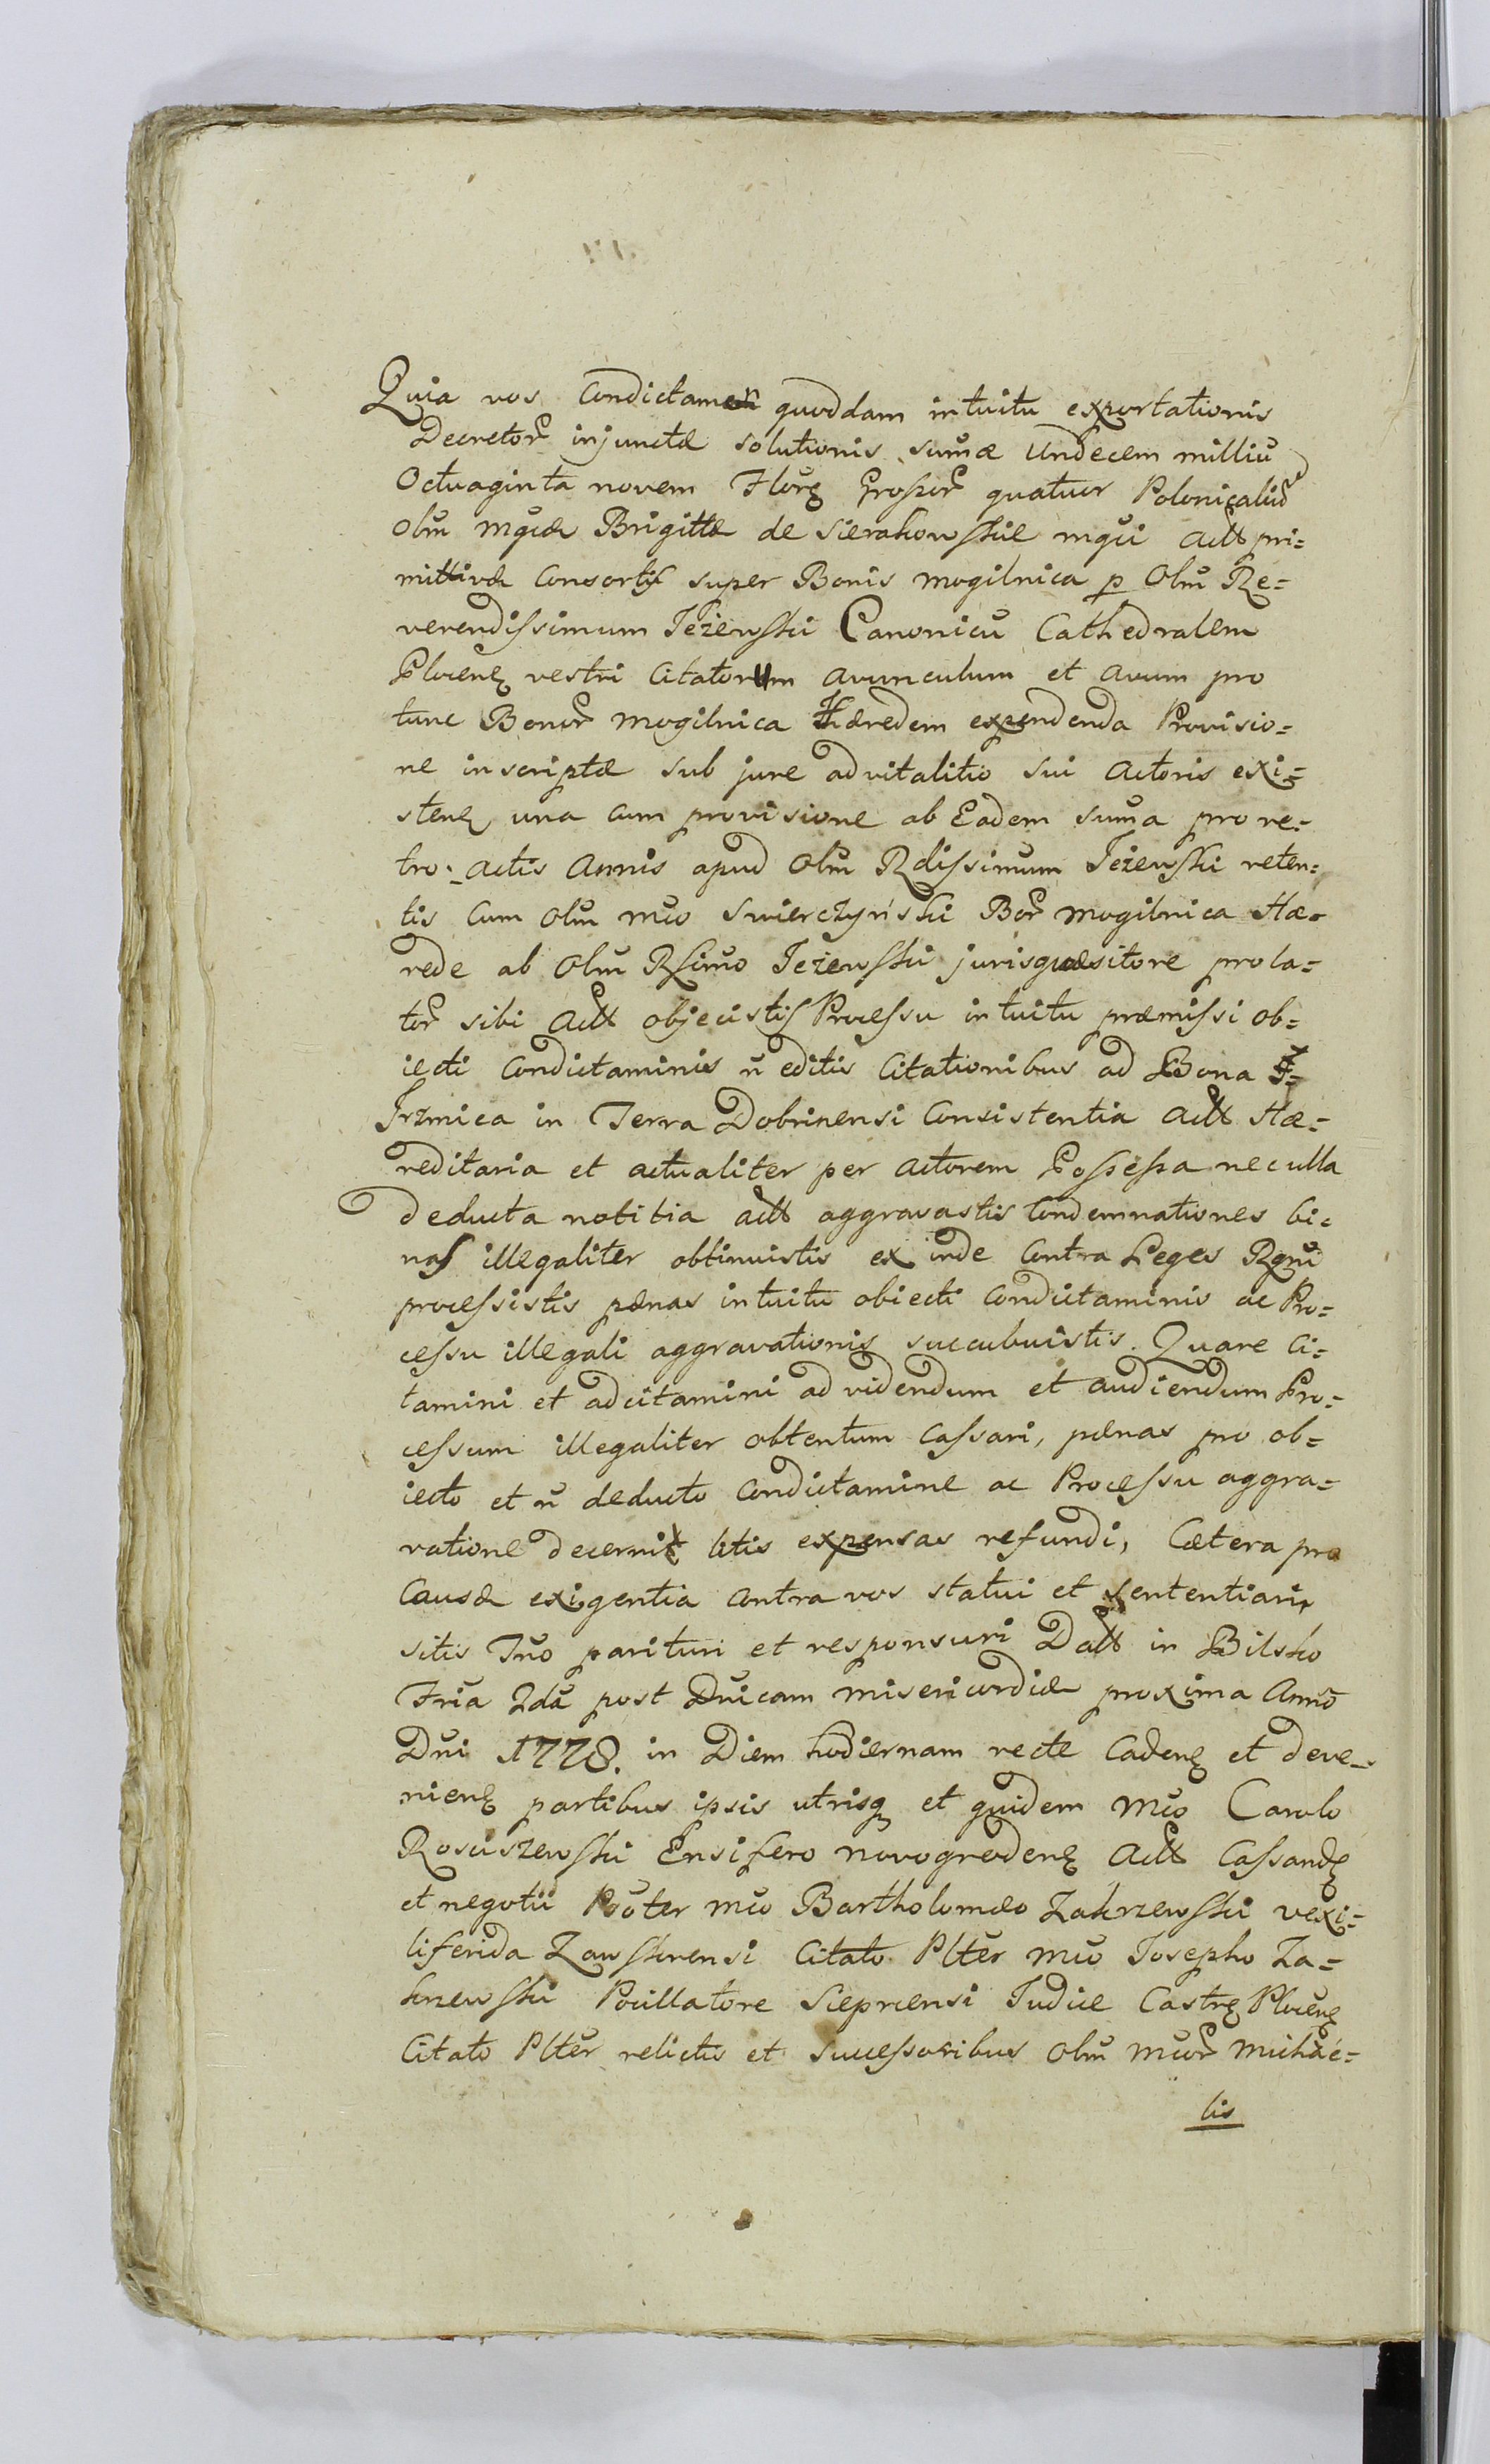 Quia vos Condictamen quoddam intuitu exportationis
Decretor̃ injunctæ solutionis sum̃æ Undecem milliũ
Octuaginta novem Flor̃ę Grossor̃ quatuor Polonicaliũ
Olm̃ Mgcæ Brigittæ de Sierakowskie mgci Actt̃ pri=
mittivæ Consortis super Bonis Mogilnica p Olm̃ Re=
verendissimum Jeżewski Canonicũ Cathedralem
Plocenę vestri Citatorum avunculum et avum pro
tunc Bonor̃ Mogilnica Hæredem expendenda Provisio=
ne inscriptæ sub jure advitalitio sui Actoris exi=
stenę una cum provisione ab Eadem sum̃a pro re=
tro-actis Annis apud Olm̃ Rdissimum Jeżewski reten=
tis Cum Olm̃ mco Swierczyński Bor̃ Mogilnica Hæ=
rede ab Olm̃ Rssimo Jeżewski jurisquæsitore prola=
tor̃ sibi Actt̃ objecistis Processu intuitu præmissi ob=
iecti Condictaminis ñ editis Citationibus ad Bona J=
Jrzmica in Terra Dobrinensi Consistentia Actt̃ Hæ=
reditaria et actualiter per Actorem Possessa nec ulla
deducta notitia actt̃ aggravastis Condemnationes bi=
nas illegaliter obtinuistis ex inde Contra Leges Regni
processistis pænas intuitu obiecti Condictaminis ac Pro=
cessu illegali aggravationis succubuistis. Quare Ci=
tamini et adcitamini ad videndum et audiendum Pro=
cessum illegaliter obtentum Cassari, pænas pro ob=
iecto et ñ deducto Condictamine ac Processu aggra=
vatione decerni litis expensas refundi, Cætera pro
Causæ exigentia Contra vos statui et sententiari,
sitis Tñno parituri et responsuri Datt̃ in Bilsko
Fria 2dã post Dñicam misericordiæ proxima Anño
Dñi 1778. in Diem hodiernam recte Cadenę et deve=
nienę partibus ipsis utrisq et quidem Mco Carolo
Rosciszewski Ensifero Novogrodenę Actt̃ Cassandę
et negotii Pr̃oter Mco Bartholomæo Zakrzewski vexi=
liferida Zawskrensi Citato Pltẽr Mco Josepho Za=
krzewski Pocillatore Sieprcensi Judice Castrę Plocenę
Citato Pltẽr relictis et Successoribus Olm̃ Mcor̃ Michae=
lis